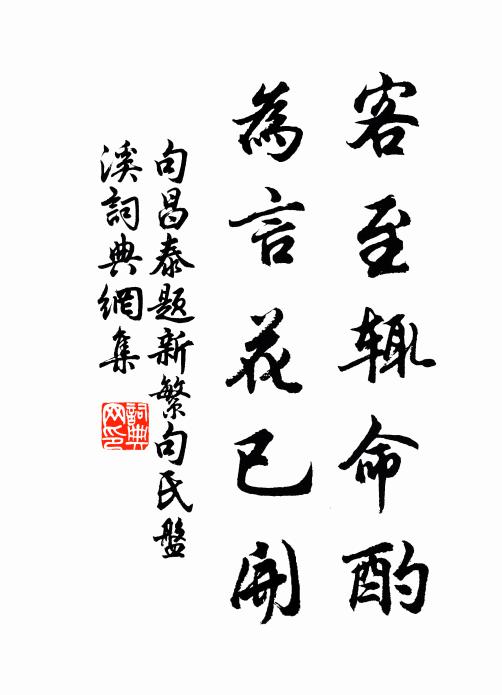 客至辄命酌
為言花已開
句昌泰题新繁句氏盤
溪詞典網集
詞典网印